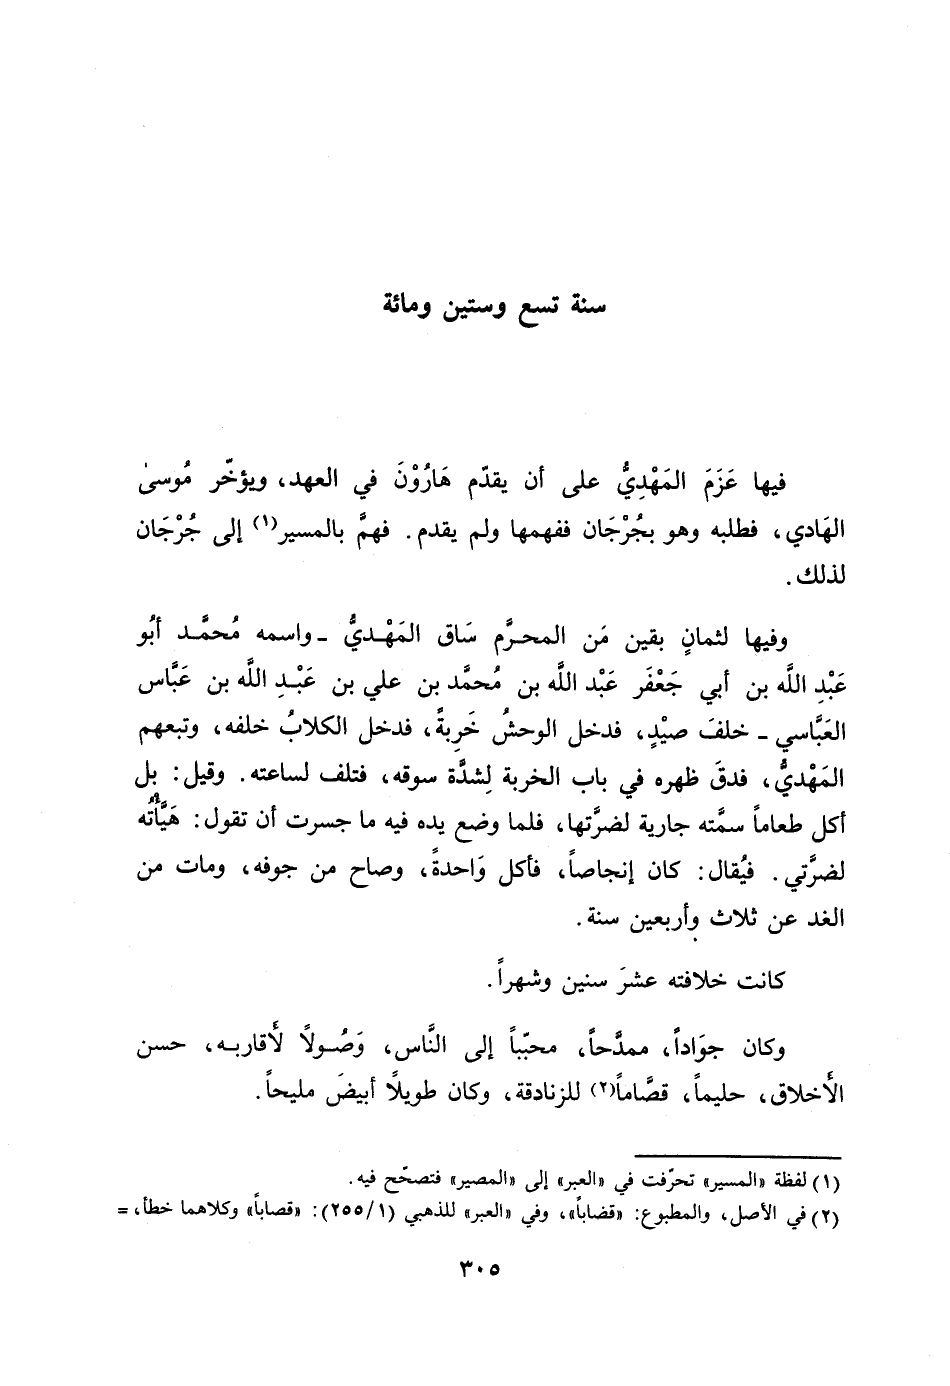 سنة تسع وستين ومائة
فيها عَزَمَ المَهْدِيُّ على أن يقدّم هَارُوْنَ في العهد، ويؤخّر مُوسىٰ
الهَادي، فطلبه وهو بجُرْجَان ففهمها ولم يقدم. فهمَّ بالمسير(١) إلى جُرْجَان
لذلك.
وفيها لثمانٍ بقين مَن المحرَّم سَاق المَهْديُّ ـ واسمه مُحمَّد أبُو
عَبْدِ اللَّه بن أبي جَعْفَر عَبْد اللَّه بن مُحمَّد بن علي بن عَبْدِ اللَّه بن عَبَّاس
العَبَّاسي ـ خلفَ صيْدٍ، فدخل الوحشُ خَرِبةً، فدخل الكلابُ خلفه، وتبعهم
المَهْديُّ، فدقَ ظهره في باب الخربة لِشدَّة سوقه، فتلف لساعته. وقيل: بل
أكل طعاماً سمَّته جارية لضرَّتها، فلما وضع يده فيه ما جسرت أن تقول: هَيَّأتُه
لضرَّتي. فيُقال: كان إنجاصاً، فأكل وَاحدةً، وصاح من جوفه، ومات من
الغد عن ثلاث وأربعين سنة.
كانت خلافته عشرَ سنين وشهراً.
وكان جوَاداً، ممدَّحاً، محبّباً إلى النَّاس، وَصُولًا لأَقاربه، حسن
الأَخلاق، حليماً، قصَّاماً(٢) للزنادقة، وكان طويلًا أبيضَ مليحاً.
(١) لفظة «المسير» تحرّفت في «العبر» إلى «المصير» فتصحّح فيه.
(٢) في الأصل، والمطبوع: «قضاباً»، وفي «العبر» للذهبي (٢٥٥/١): «قصاباً» وكلاهما خطأ، =
٣٠٥